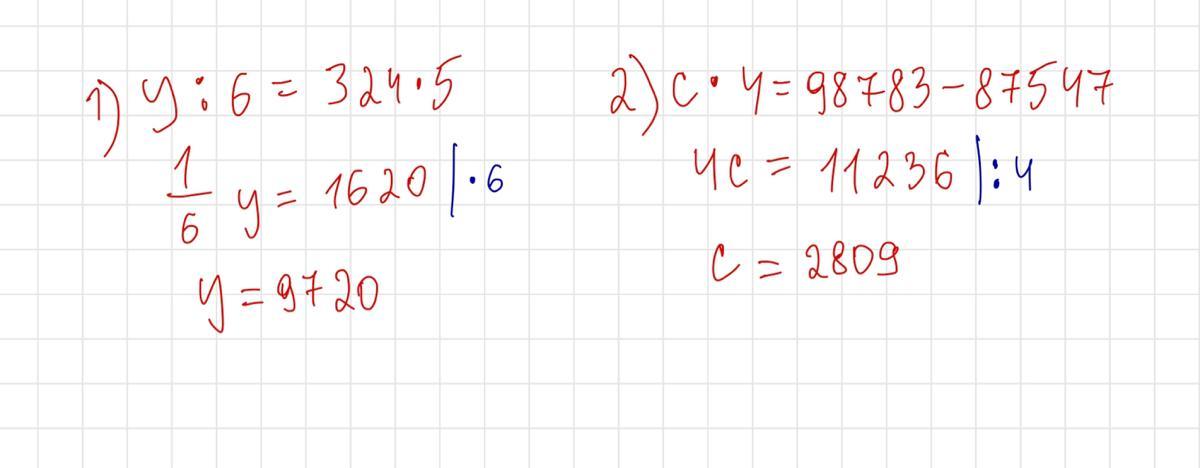 1) y : 6 = 324 · 5
1/6 y = 1620 | · 6
y = 9720
2) c · 4 = 98783 - 87547
4c = 11236 | : 4
c = 2809